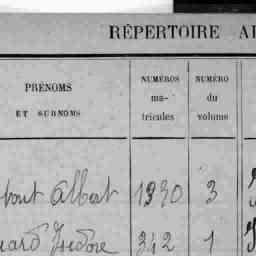 RÉPERTOIRE
PRÉNOMS
ET SURNOMS
NUMÉROS
ma-
tricules
NUMÉRO
du
volume
Albert 1930 3
Isidore 342 1